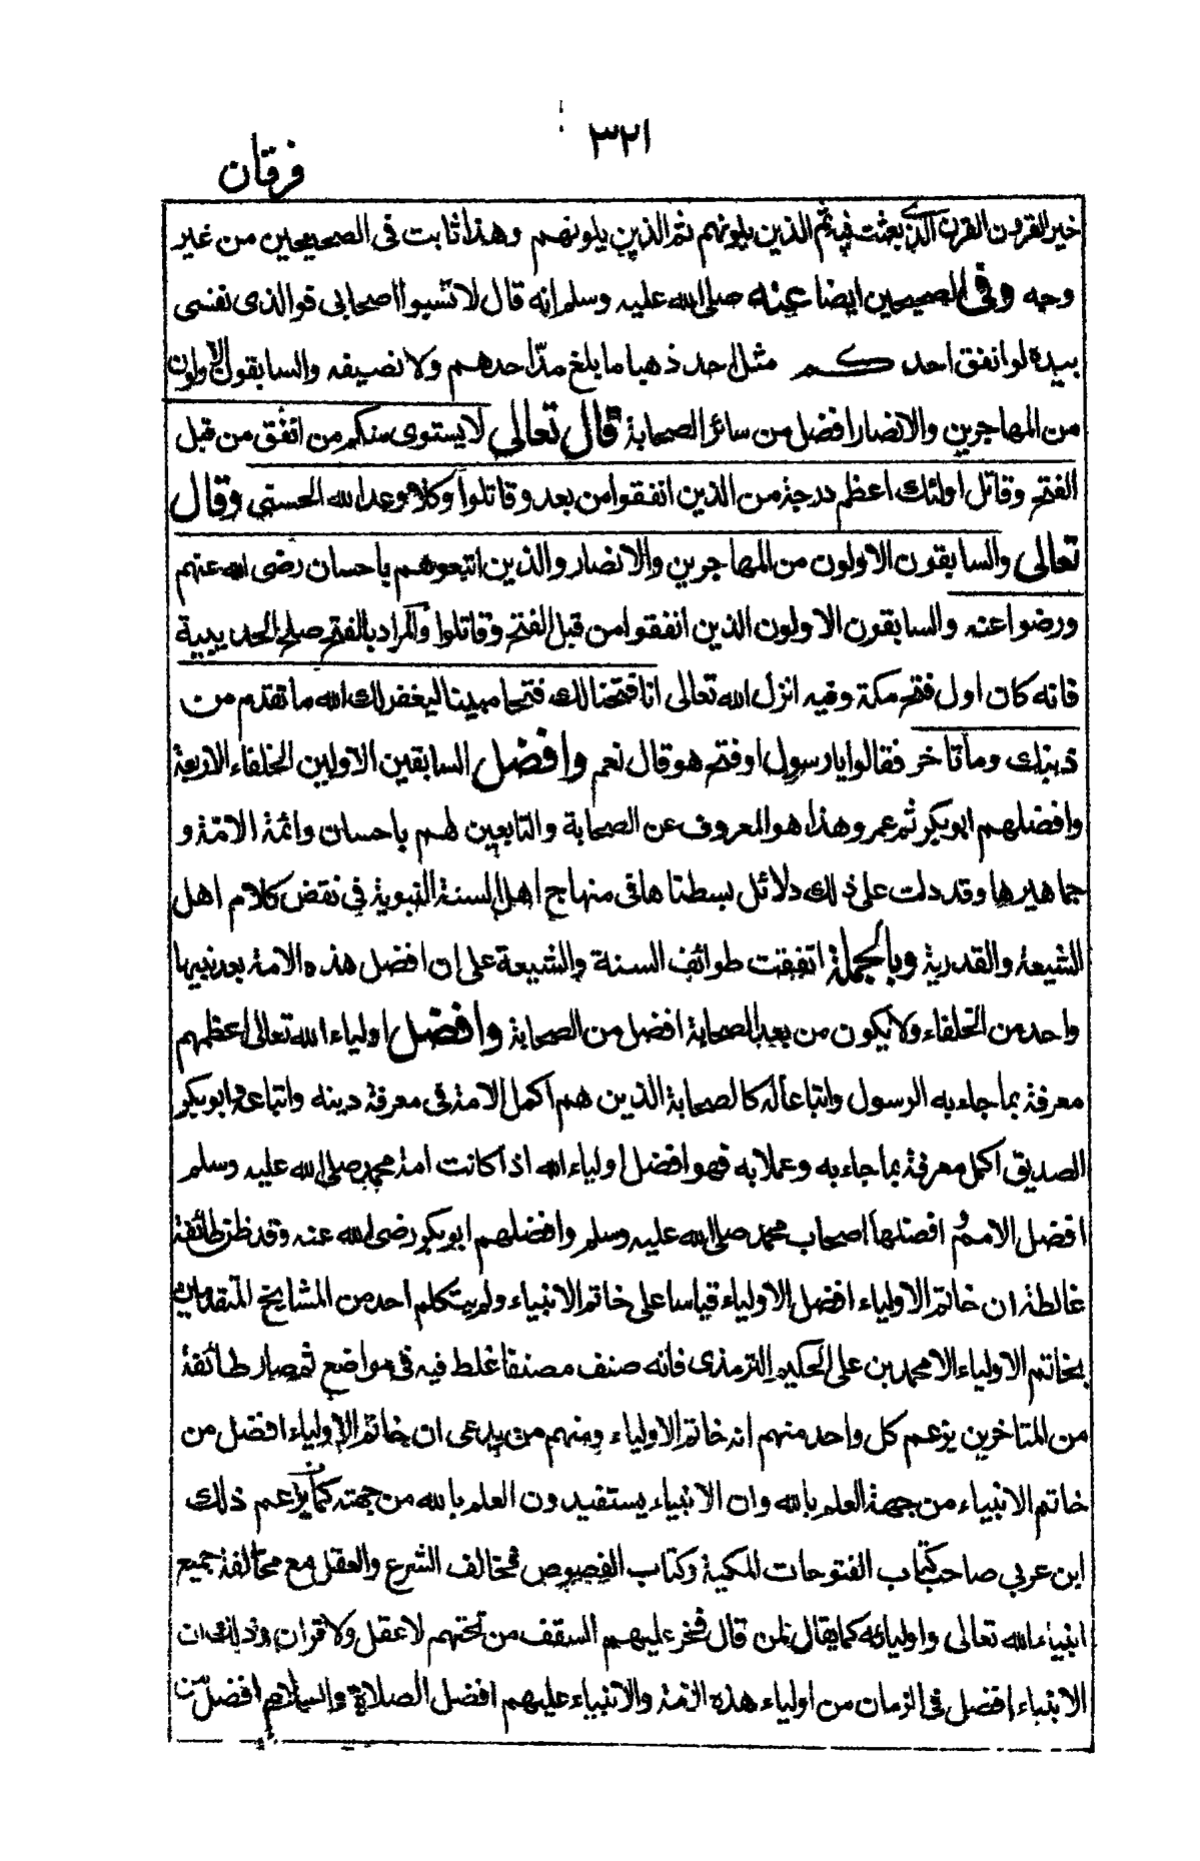 ٣٢١
فرقان
خير القرون القرن الذى بعثت فيه ثم الذين يلونهم ثم الذين يلونهم وهذا ثابت فى الصحيحين من غير
وجه وفى الصحيحين ايضا عنه صلى الله عليه وسلم انه قال لا تسبوا اصحابى فوالذى نفسى
بيده لو انفق احدكم مثل احد ذهبا ما بلغ مدّ احدهم ولا نصيفه والسابقون الاولون
من المهاجرين والانصار افضل من سائر الصحابة قال تعالى لا يستوى منكم من انفق من قبل
الفتح وقاتل اولئك اعظم درجة من الذين انفقوا من بعد وقاتلوا وكلا وعد الله الحسنى وقال
تعالى والسابقون الاولون من المهاجرين والانصار والذين اتبعوهم باحسان رضى الله عنهم
ورضوا عنه والسابقون الاولون الذين انفقوا من قبل الفتح وقاتلوا والمراد بالفتح صلح الحديبية
فانه كان اول فتح مكة وفيه انزل الله تعالى انا فتحنا لك فتحا مبينا ليغفر لك الله ما تقدم من
ذنبك وما تاخر فقالوا يا رسول او فتح هو قال نعم وافضل السابقين الاولين الخلفاء الاربعة
وافضلهم ابوبكر ثم عمر وهذا هو المعروف عن الصحابة والتابعين لهم باحسان وائمة الامّة و
جماهيرها وقد دلت على ذلك دلائل بسطناها فى منهاج اهل السنة النبوية فى نقض كلام اهل
الشيعة والقدرية وبالجملة اتفقت طوائف السنة والشيعة على ان افضل هذه الامة بعد نبيها
واحد من الخلفاء ولا يكون من بعد الصحابة افضل من الصحابة وافضل اولياء الله تعالى اعظمهم
معرفة بما جاء به الرسول واتباعا له كالصحابة الذين هم اكمل الامة فى معرفة دينه واتباعه وابوبكر
الصديق اكمل معرفة بما جاء به وعملا به فهو افضل اولياء الله اذ كانت امة محمد صلى الله عليه وسلم
افضل الامم وافضلها اصحاب محمد صلى الله عليه وسلم وافضلهم ابوبكر رضى الله عنه وقد ظن طائفة
غالطة ان خاتم الاولياء افضل الاولياء قياسا على خاتم الانبياء ولم يتكلم احد من المشايخ المتقدمين
بخاتم الاولياء الا محمد بن على الحكيم الترمذى فانه صنف مصنفا غلط فيه فى مواضع ثم صار طائفة
من المتاخرين يزعم كل واحد منهم انه خاتم الاولياء ومنهم من يدعى ان خاتم الاولياء افضل من
خاتم الانبياء من جهة العلم بالله وان الانبياء يستفيدون العلم بالله من جهته كما يزعم ذلك
ابن عربى صاحب كتاب الفتوحات المكية وكتاب الفصوص فخالف الشرع والعقل مع مخالفة جميع
انبياء الله تعالى واوليائه كما يقال لمن قال فخر عليهم السقف من تحتهم لا عقل ولا قران وذلك ان
الانبياء افضل فى الزمان من اولياء هذه الامة والانبياء عليهم افضل الصلاة والسلام افضل من